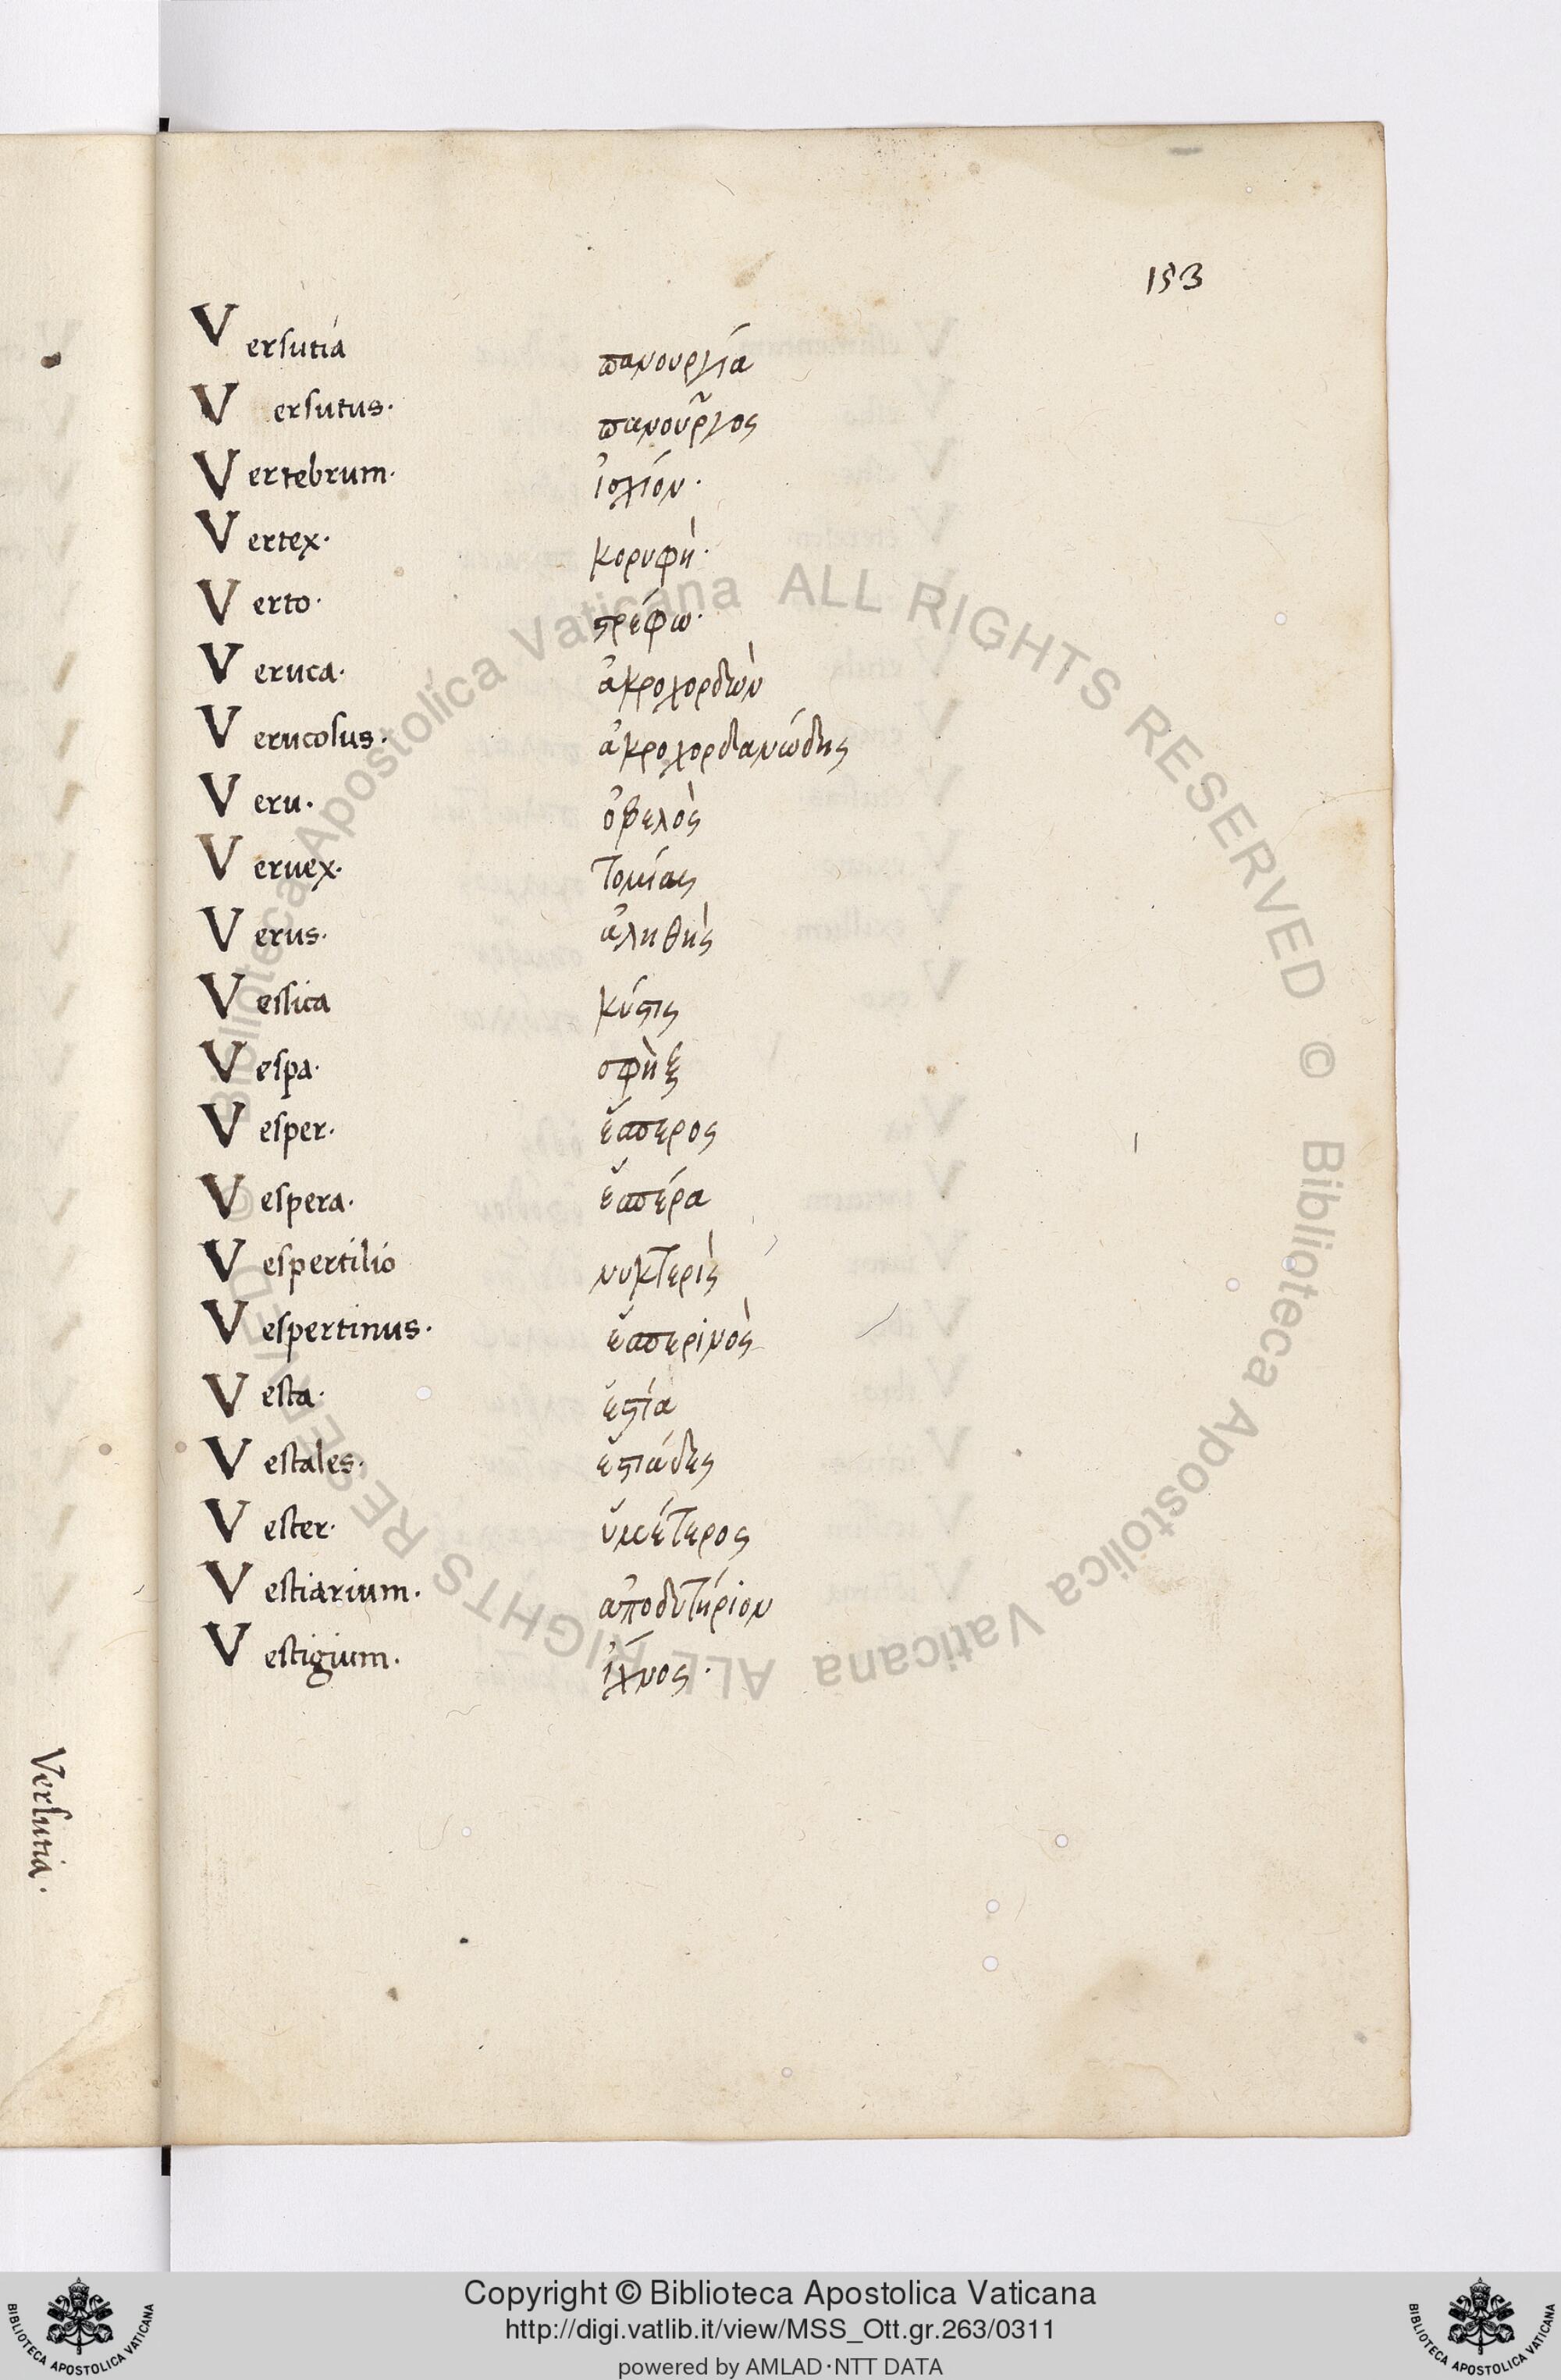 153
Versutia πανουργία
Versutus. πανοῦργος
Vertebrum. ἰσχίον.
Vertex. κορυφὴ.
Verto. στρέφω.
Veruca. ἀκροχορδὼν
Verucosus. ἀκροχορδανώδης
Veru. ὀβελὸς
Veruex. τομίας
Verus. ἀληθὴς
Vessica κύστις
Vespa. σφὴξ
Vesper. ἕσπερος
Vespera. ἑσπέρα
Vespertilio νυκτερὶς
Vespertinus. ἑσπερινὸς
Vesta. ἑστία
Vestales. ἑστιάδες
Vester. ὑμέτερος
Vestiarium. ἀποδυτήριον
Vestigium. ἴχνος.
Versutia.
Biblioteca Apostolica Vaticana ALL RIGHTS RESERVED ©
Biblioteca Apostolica Vaticana ALL RIGHTS RESERVED ©
Copyright © Biblioteca Apostolica Vaticana
http://digi.vatlib.it/view/MSS_Ott.gr.263/0311
powered by AMLAD·NTT DATA
BIBLIOTECA APOSTOLICA VATICANA
BIBLIOTECA APOSTOLICA VATICANA